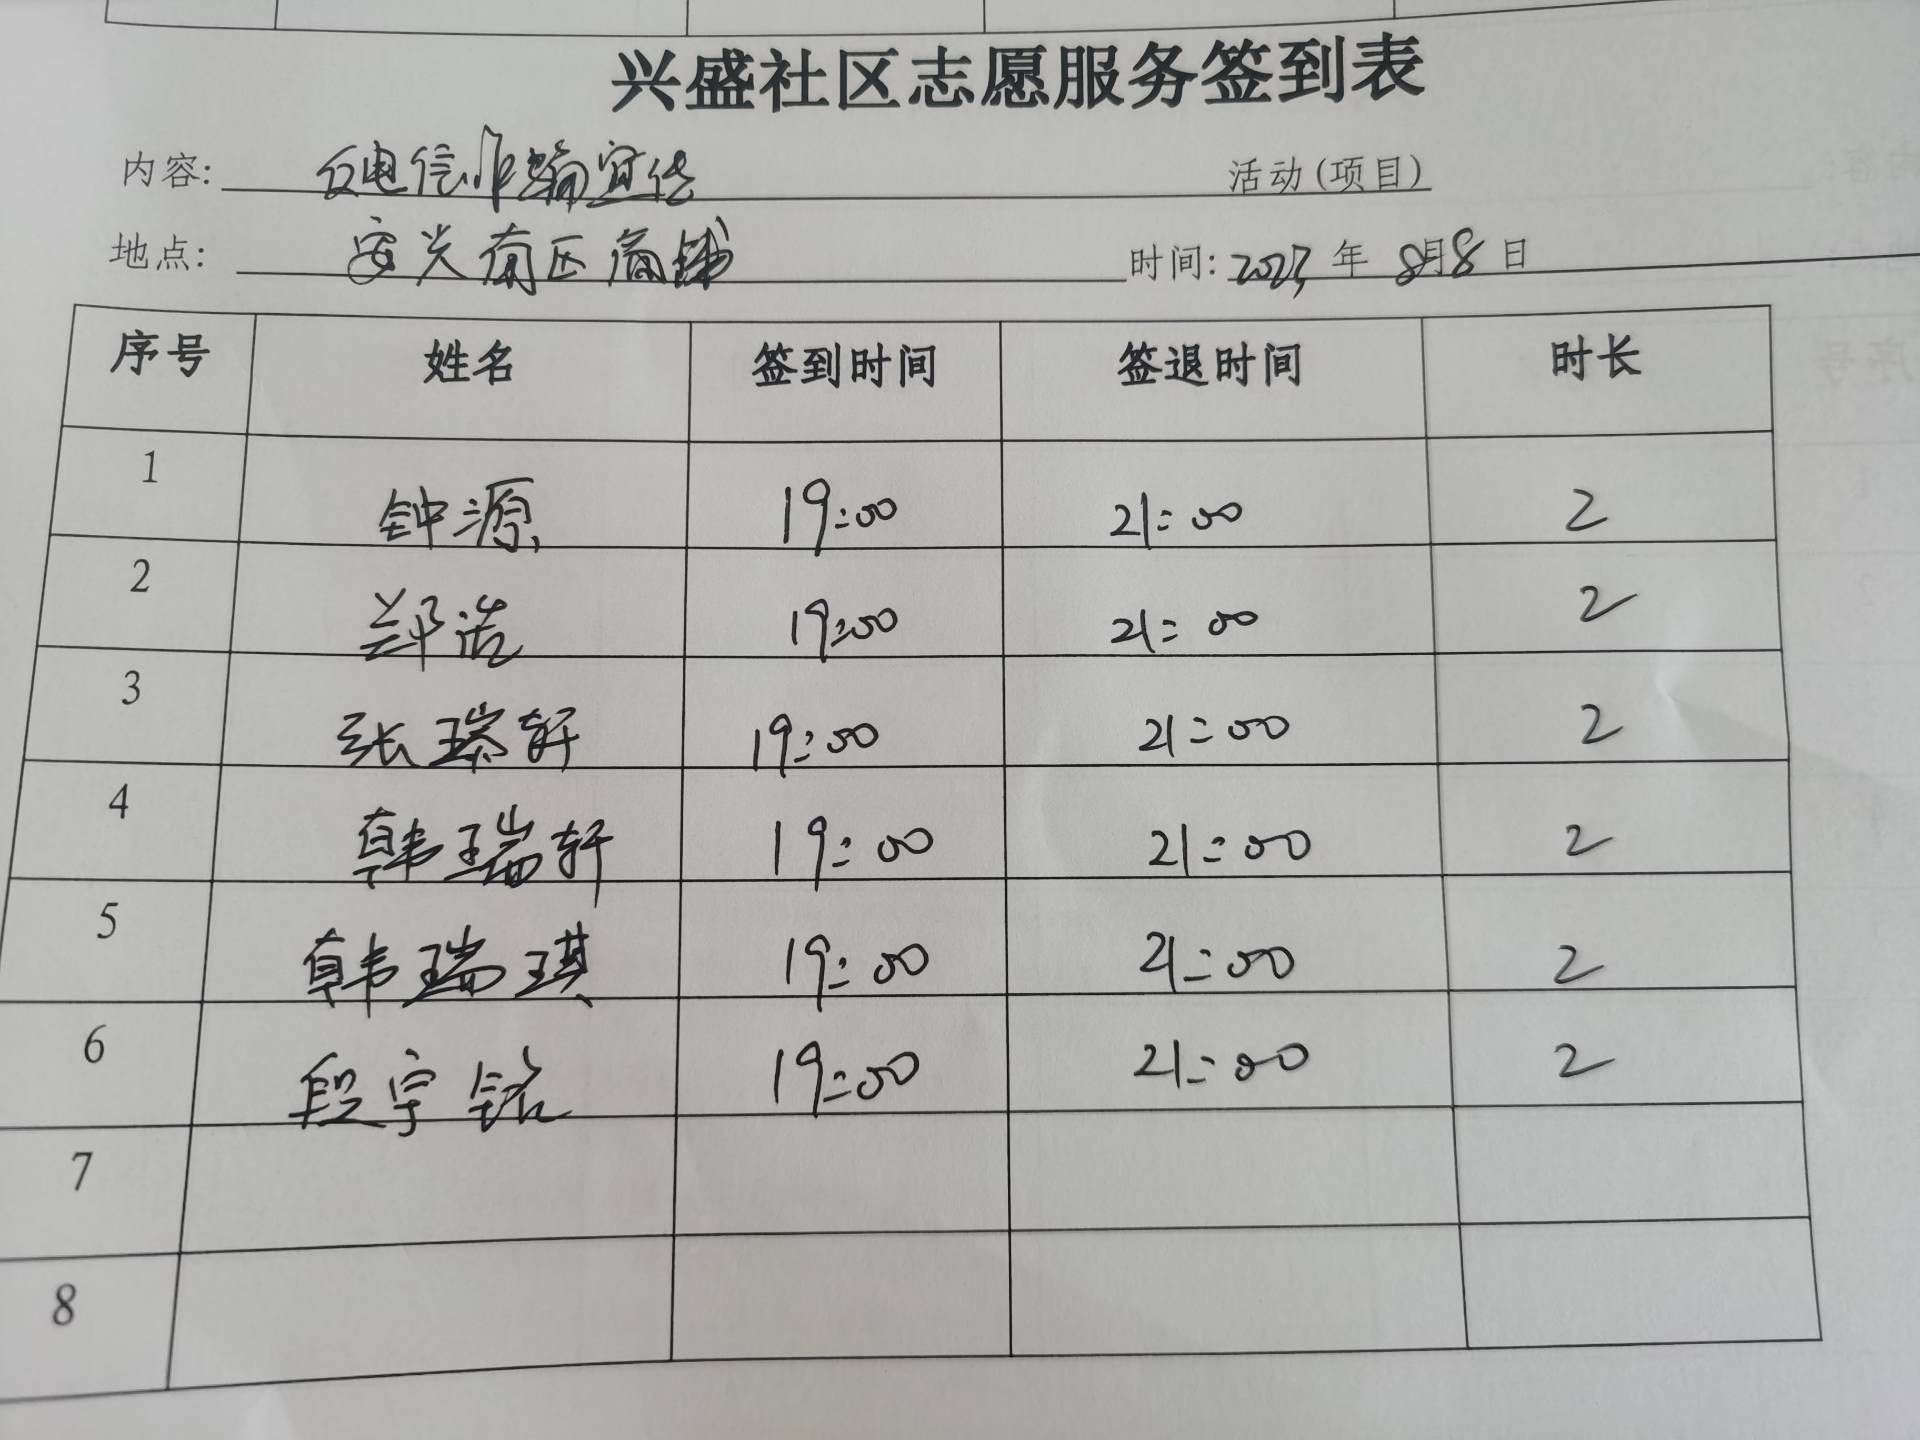 兴盛社区志愿服务签到表
内容: 反电信诈骗宣传 活动(项目)
地点: 安兴南区商铺 时间: 2023年 8月8日
序号 姓名 签到时间 签退时间 时长
1 钟源 19:00 21:00 2
2 郑浩 19:00 21:00 2
3 张瑞轩 19:00 21:00 2
4 韩瑞轩 19:00 21:00 2
5 韩瑞琪 19:00 21:00 2
6 段宇铭 19:00 21:00 2
7
8